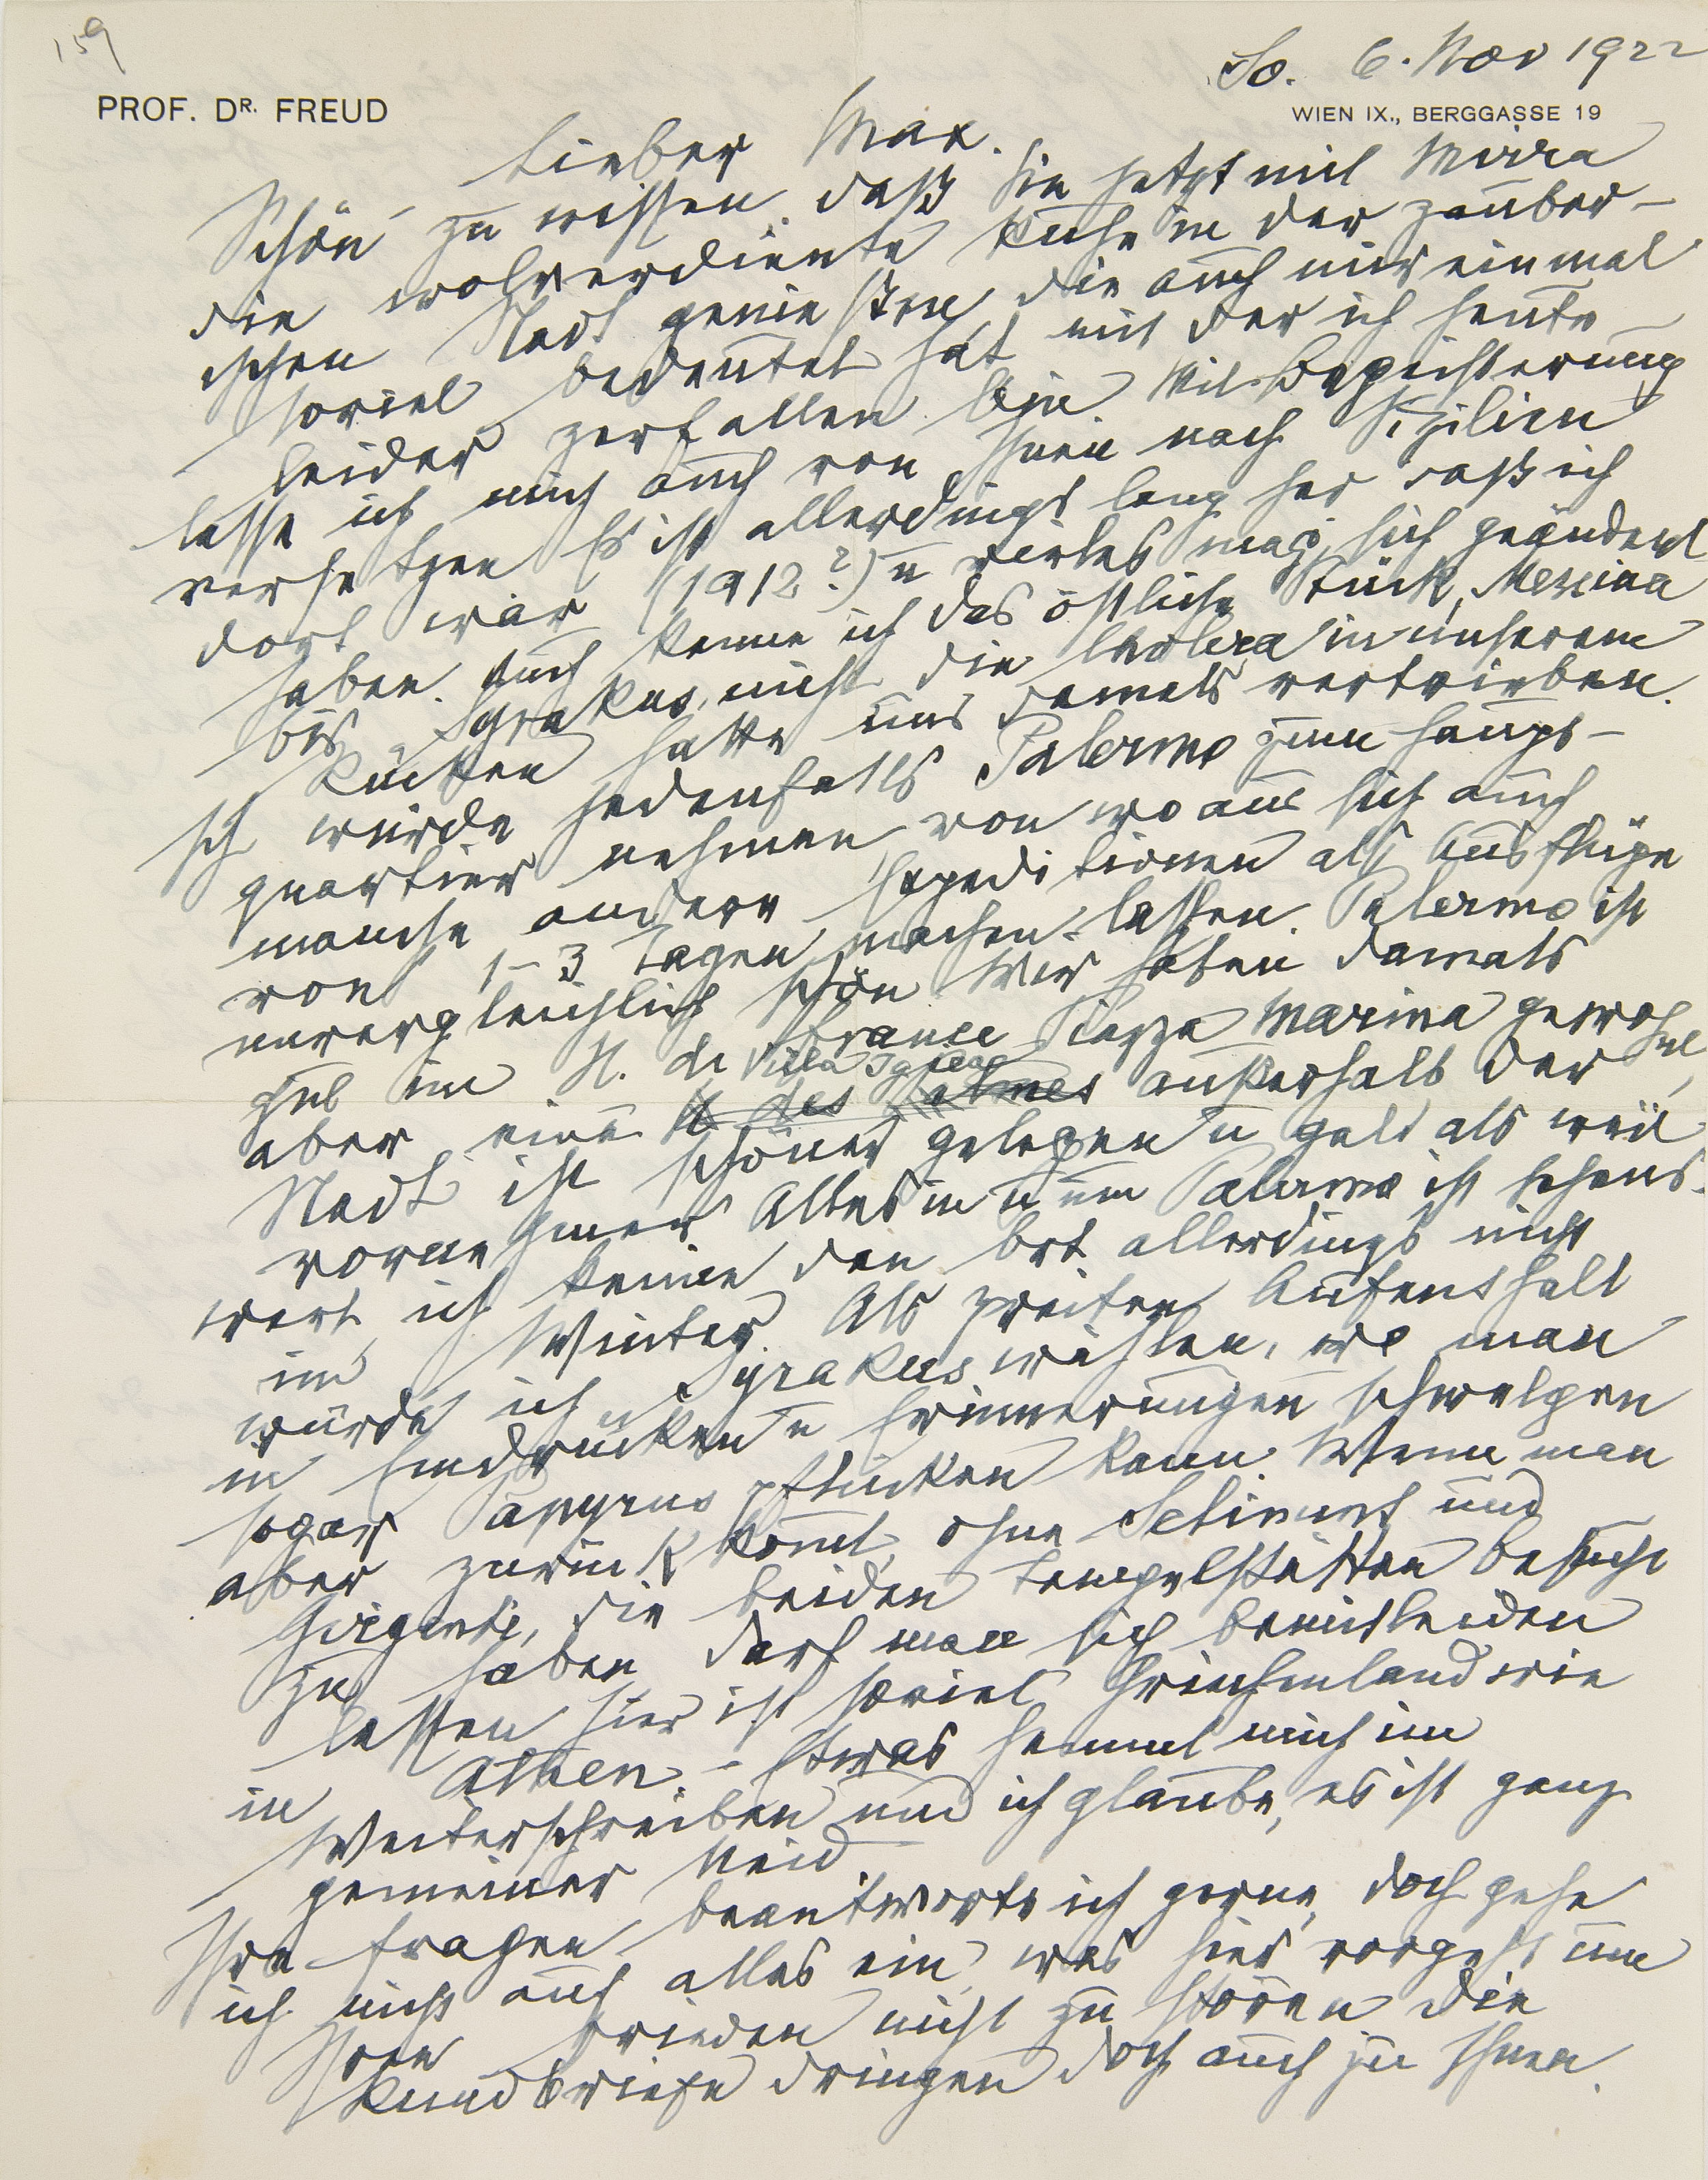 159
So. 6. Nov 1922
PROF. DR. FREUD
WIEN IX., BERGGASSE 19
Lieber Max.
Schön zu wissen, daß Sie jetzt mit Mirra
die wolverdiente Ruhe in der zauber-
ischen Stadt genießen, die auch mir einmal
soviel bedeutet hat mit der ich heute
leider zerfallen bin. Mit Begeisterung
lasse ich mich auch von Ihnen nach Sizilien
versetzen Es ist allerdings lang her daß ich
dort war (1912?) u vieles mag sich geändert
haben. Auch kenne ich das östliche Stück, Messina
bis Syrakus, nicht die Cholera in unserem
Rücken hatte uns damals vertrieben.
Ich würde jedenfalls Palermo zum Haupt-
quartier nehmen von wo aus sich auch
manche andere Expeditionen als Ausflüge
von 1-3 Tagen machen lassen. Palermo ist
unvergleichlich schön Wir haben damals
gut im H. de France Piazza Marina gewohnt,
Villa Igiea
aber eine H. des Palmes außerhalb der
Stadt ist schöner gelegen u galt als weit
vornehmer Alles in u um Palermo ist sehens-
wert, ich kenne den Ort allerdings nicht
im Winter. Als zweiten Aufenthalt
würde ich Syrakus wählen, wo man
in Eindrücken u Erinnerungen schwelgen
sogar Papyrus pflücken kann. Wenn man
aber zurück kom̅t, ohne Selinunt und
Girgenti, die beiden Tempelstätten besucht
zu haben darf man sich bemitleiden
lassen hier ist soviel Griechenland wie
in Athen. - Etwas hemmt mich im
Weiterschreiben und ich glaube, es ist ganz
gemeiner Neid.
Ihre Fragen beantworte ich gerne, doch gehe
ich nicht auf alles ein, was hier vorgeht um
Ihren Frieden nicht zu stören die
Rundbriefe dringen doch auch zu Ihnen.